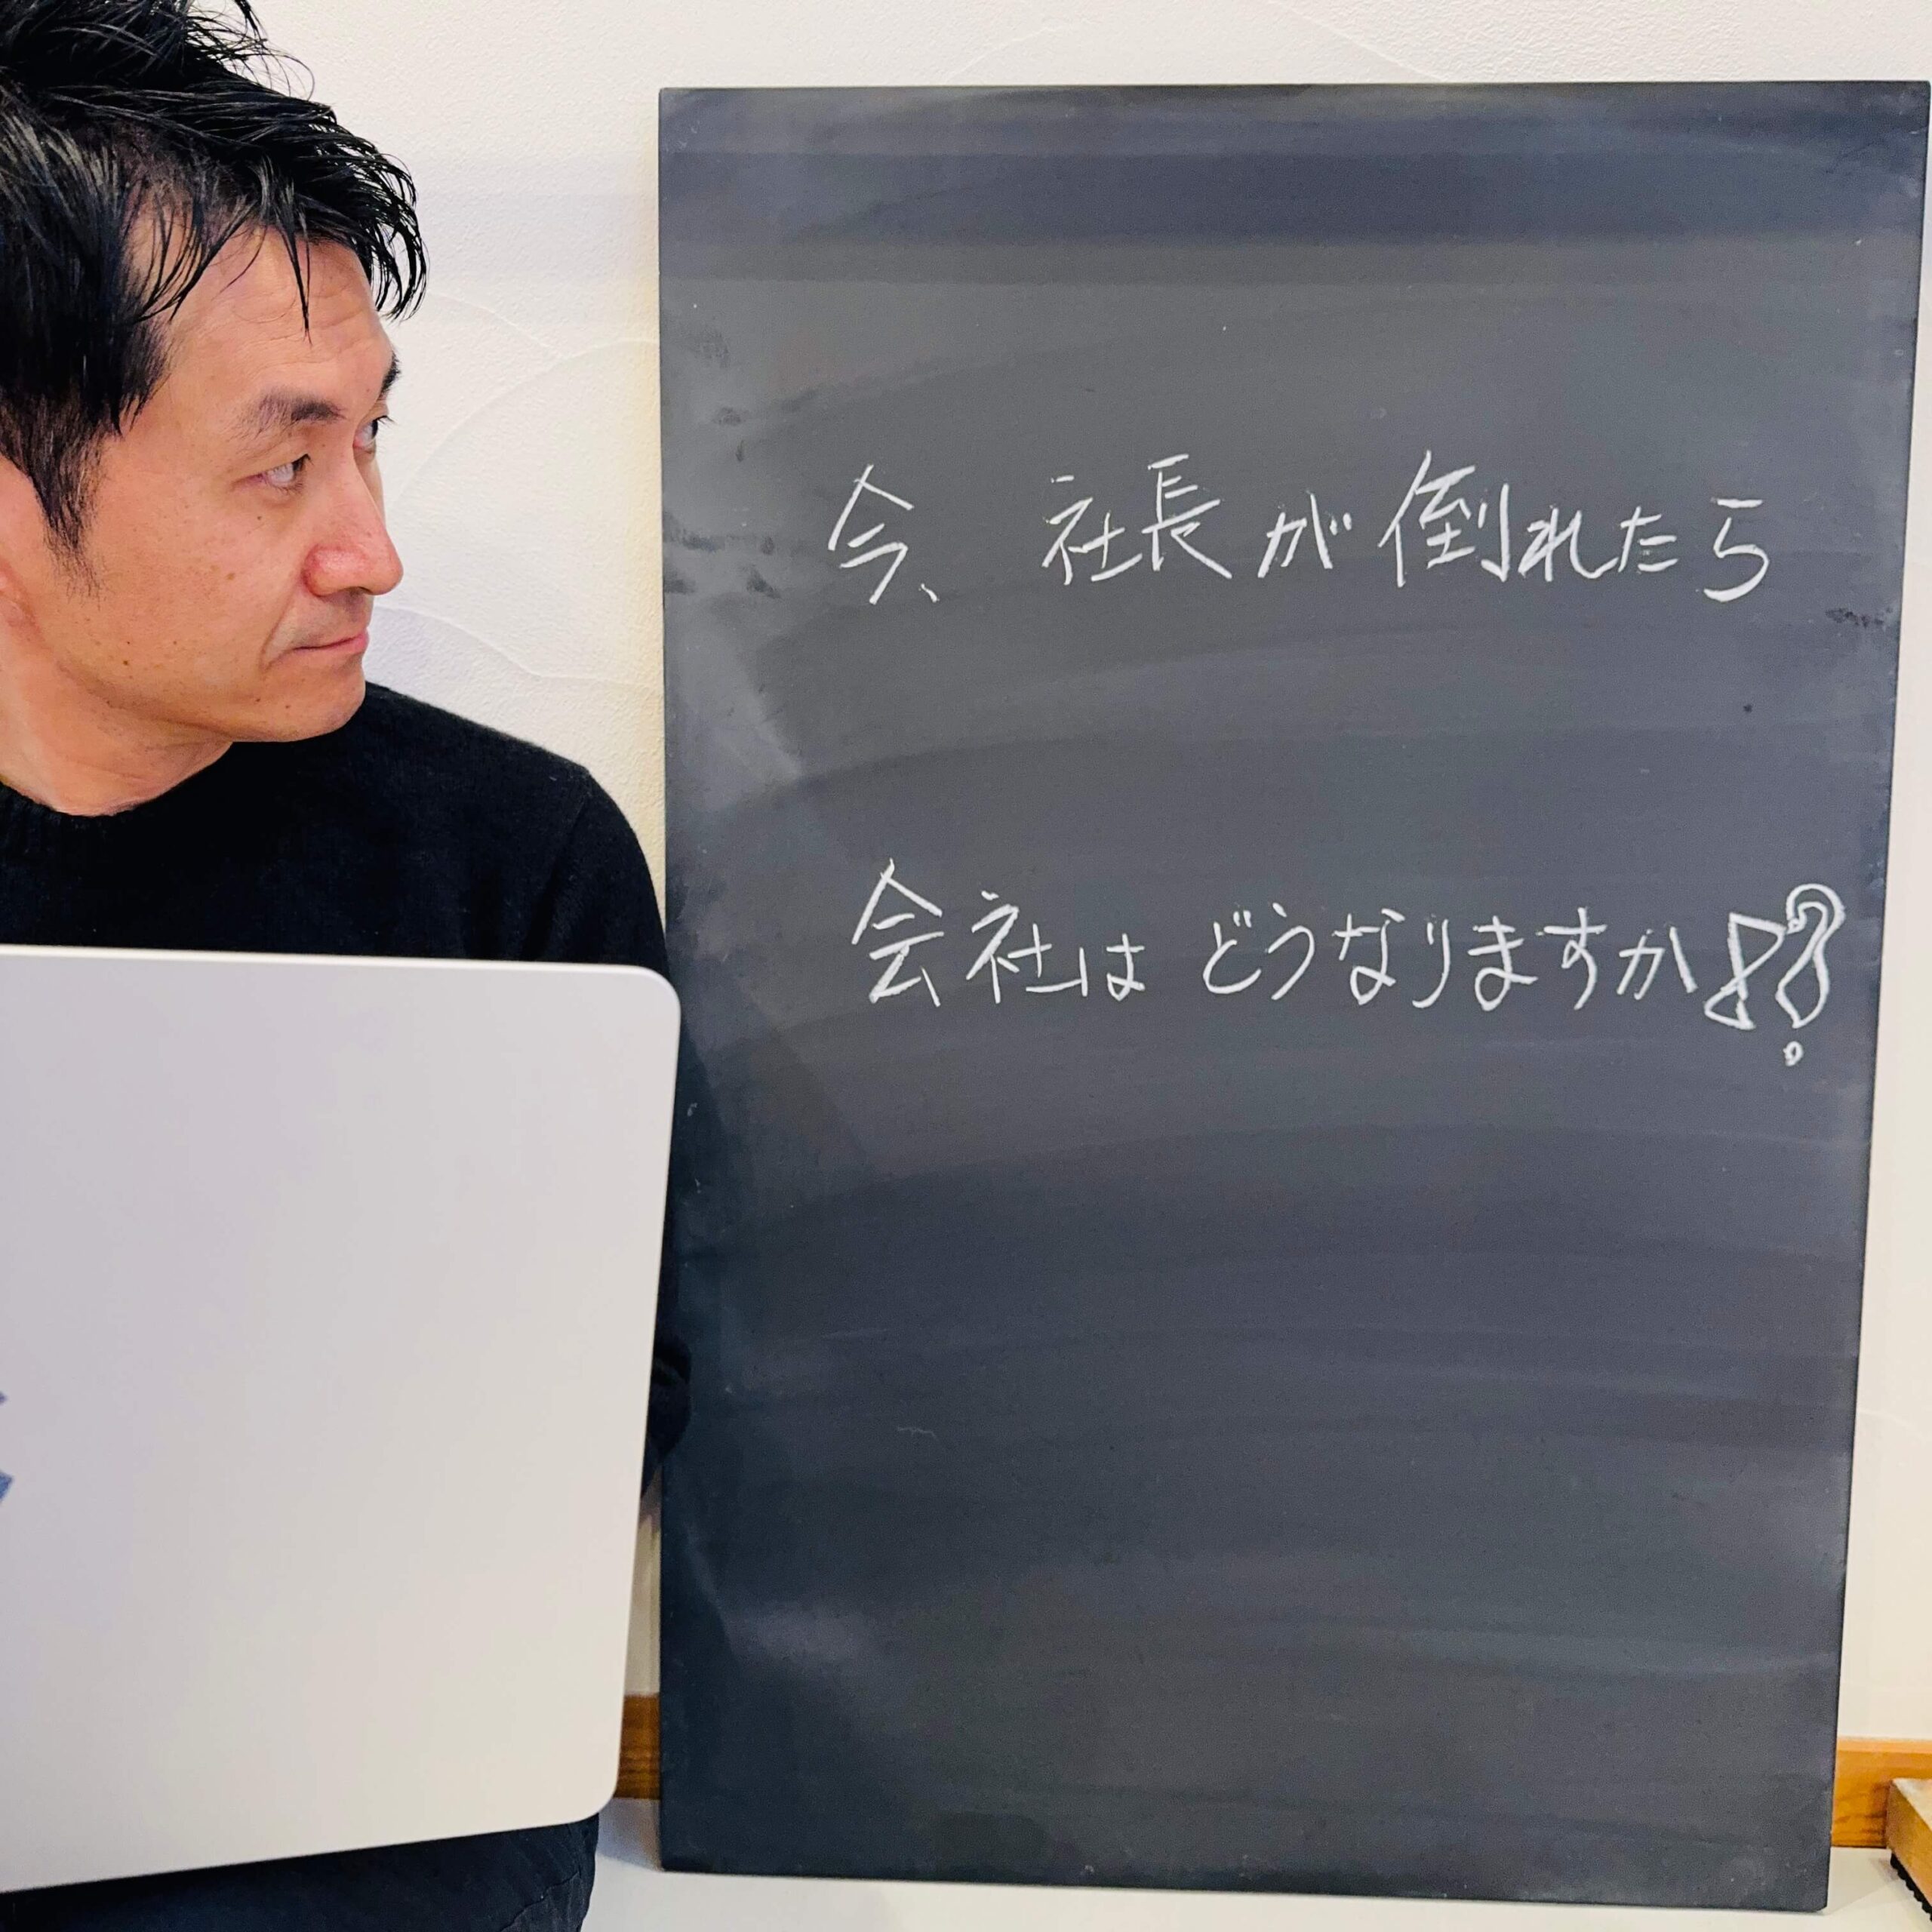 今、社長が倒れたら
会社はどうなりますか!?